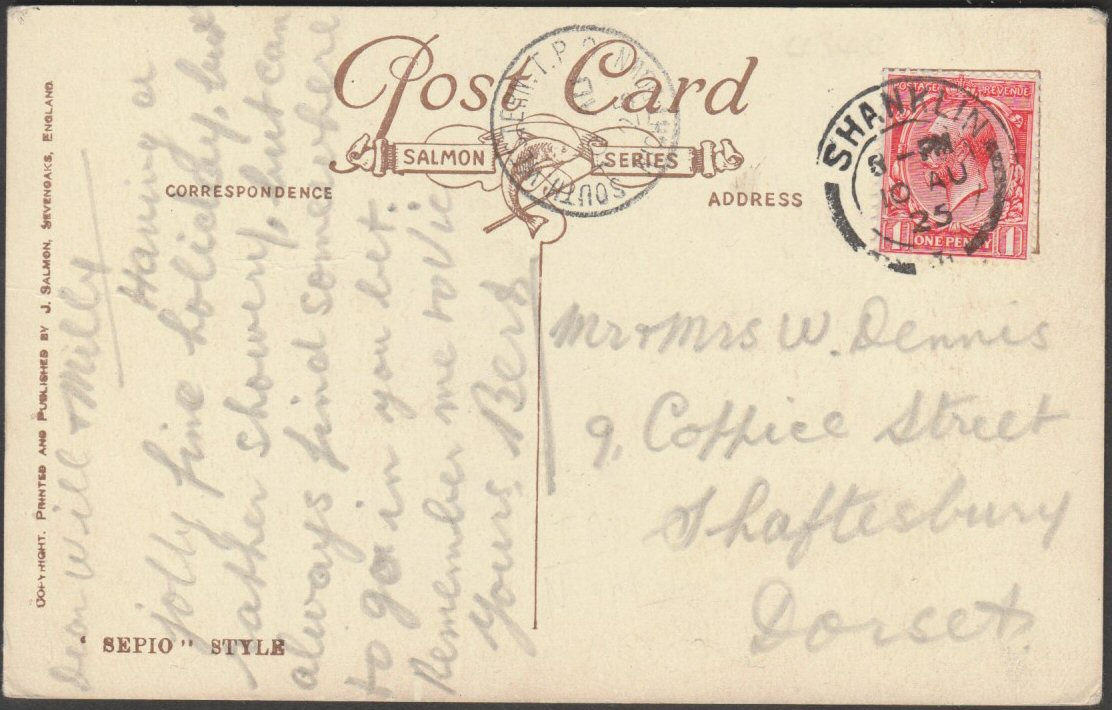 Post Card
SALMON SERIES
CORRESPONDENCE
ADDRESS
COPYRIGHT. PRINTED AND PUBLISHED BY J. SALMON, SEVENOAKS, ENGLAND
Dear Will & Milly
Having a
jolly fine holiday, but
rather showery, but can
always find somewhere
to go in you bet.
Remember me to Vic
Yours Bert
' SEPIO " STYLE
SOUTHN
SHANKLIN
5 - PM
10 AU
25
POSTAGE REVENUE
1 ONE PENNY 1
Mr & Mrs W. Dennis
9, Coppice Street
Shaftesbury
Dorset